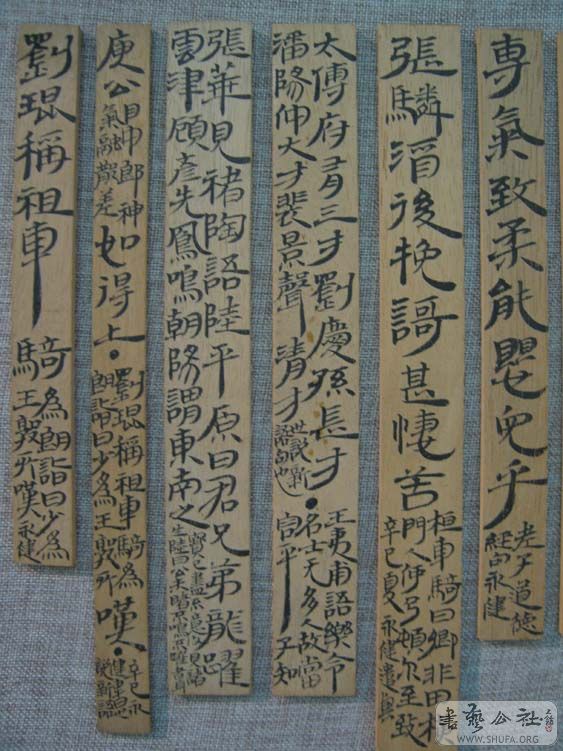 専氣致柔能嬰兒乎
老子道德
經句永建
張驎酒後挽謌甚悽苦
桓車騎曰卿非田横
門人何乃頓尔至致
辛巳夏永建遣興
太傅府有三才劉慶孫長才
潘陽仲大才裴景聲清才
世說新
語句也
王夷甫語樂令
名士无多人故當
容平子知
張華見褚陶語陸平原曰君兄弟龍躍
雲津顧彦先鳳鳴朝陽謂東南之
寶已盡不意復見褚
生陸曰公未睹不鳴不躍者
庾公
目中郎神
氣融散差
如得上
劉琨稱祖車騎為
朗詣曰少為王敦所
嘆
辛巳永
說新語
劉琨稱祖車騎
為朗詣曰少為
王敦所嘆永建
書藝公社
WWW.SHUFA.ORG